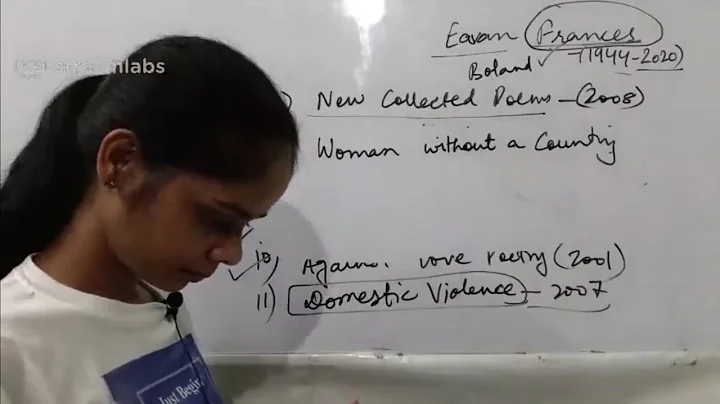 streamlabs
Eavan Frances
Boland (1944-2020)
) New Collected Poems - (2008)
Woman without a Country
10) Against love Poetry (2001)
11) Domestic Violence - 2007
Just Begin